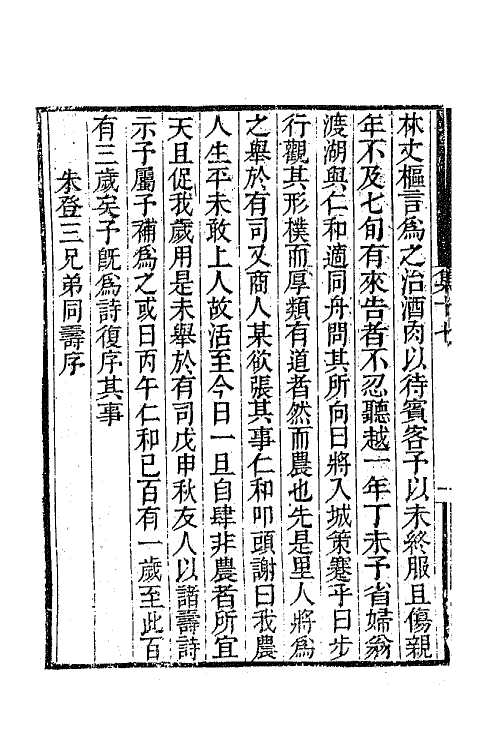 林丈樞言爲之治酒肉以待賓客予以未終服且傷親
年不及七旬有來告者不忍聽越一年丁未予省婦翁
渡湖與仁和適同舟問其所向曰將入城策蹇乎曰步
行觀其形樸而厚類有道者然而農也先是里人將爲
之舉於有司又商人某欲張其事仁和叩頭謝曰我農
人生平未敢上人故活至今日一旦自肆非農者所宜
天且促我歲用是未舉於有司戊申秋友人以諸壽詩
示予屬予補爲之或曰丙午仁和已百有一歲至此百
有三歲矣予旣爲詩復序其事
朱登三兄弟同壽序
集十七